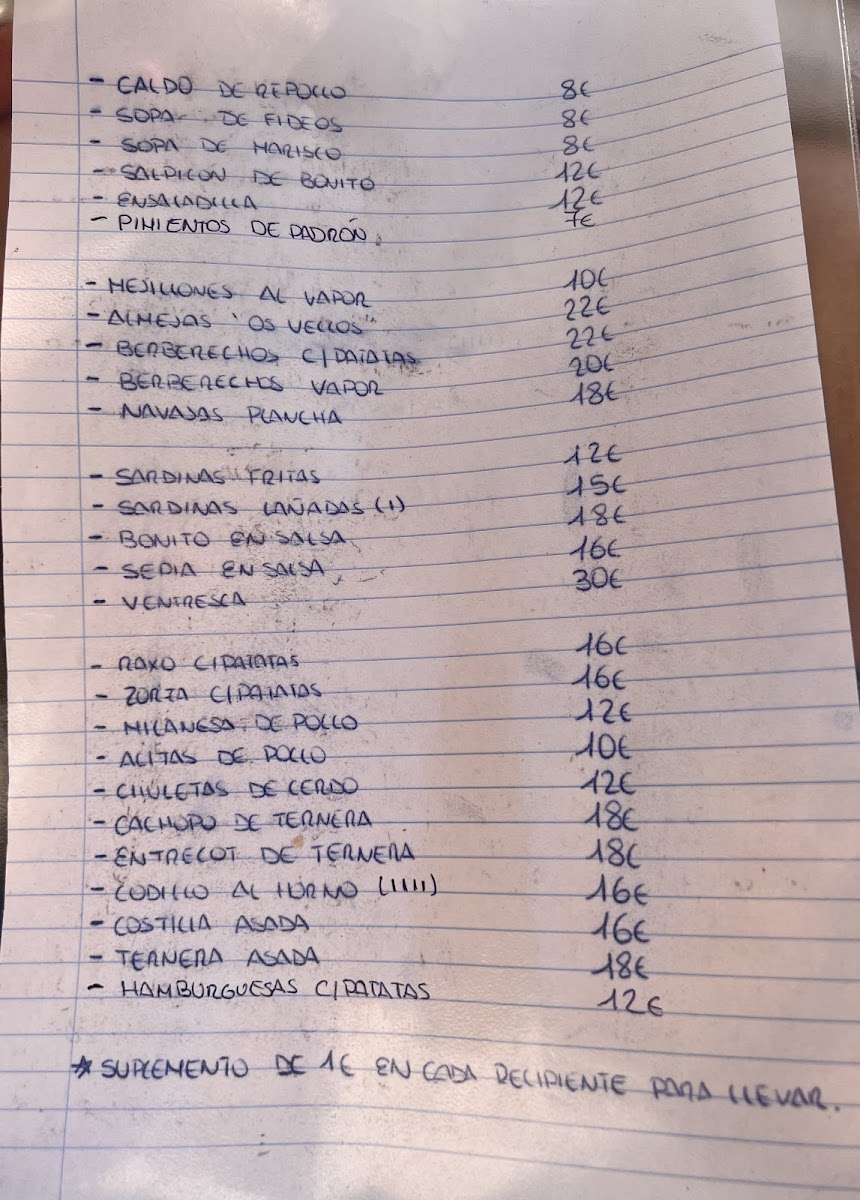 - CALDO DE REPOLLO 8€
- SOPA DE FIDEOS 8€
- SOPA DE MARISCO 8€
- SALPICON DE BONITO 12€
- ENSALADILLA 12€
- PIMIENTOS DE PADRÓN 7€
- MEJILLONES AL VAPOR 10€
- ALMEJAS "OS VELLOS" 22€
- BERBERECHOS C/PATATAS 22€
- BERBERECHOS VAPOR 20€
- NAVAJAS PLANCHA 18€
- SARDINAS FRITAS 12€
- SARDINAS LAÑADAS (1) 15€
- BONITO EN SALSA 18€
- SEPIA EN SALSA 16€
- VENTRESCA 30€
- RAXO C/PATATAS 16€
- ZORZA C/PATATAS 16€
- MILANESA DE POLLO 12€
- ALITAS DE POLLO 10€
- CHULETAS DE CERDO 12€
- CACHOPO DE TERNERA 18€
- ENTRECOT DE TERNERA 18€
- CODILLO AL HORNO (11111) 16€
- COSTILLA ASADA 16€
- TERNERA ASADA 18€
- HAMBURGUESAS C/PATATAS 12€
* SUPLEMENTO DE 1€ EN CADA RECIPIENTE PARA LLEVAR.